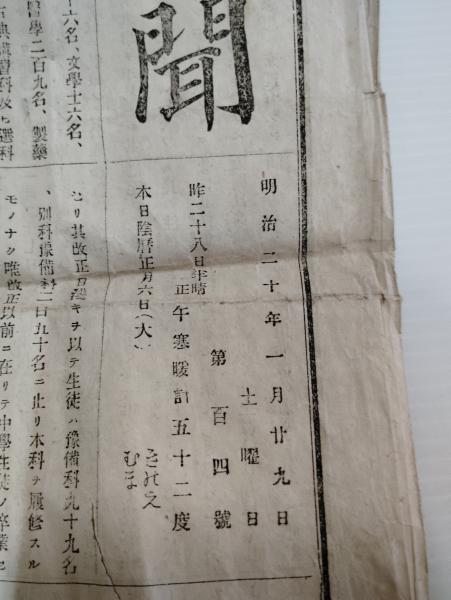 聞
明治二十年一月廿九日
土曜日
第百四號
昨二十八日半晴 正午寒暖計五十二度
本日陰曆正月六日(大) きのえ
むま
十六名、文學士十六名、
醫學二百九名、製藥
古典講習科及ヒ選科
セリ其改正日淺キヲ以テ生徒ハ豫備科九十九名
、別科豫備科二百五十名ニ止リ本科ヲ履修スル
モノナク唯改正以前ニ在リテ中學生徒ノ卒業セ